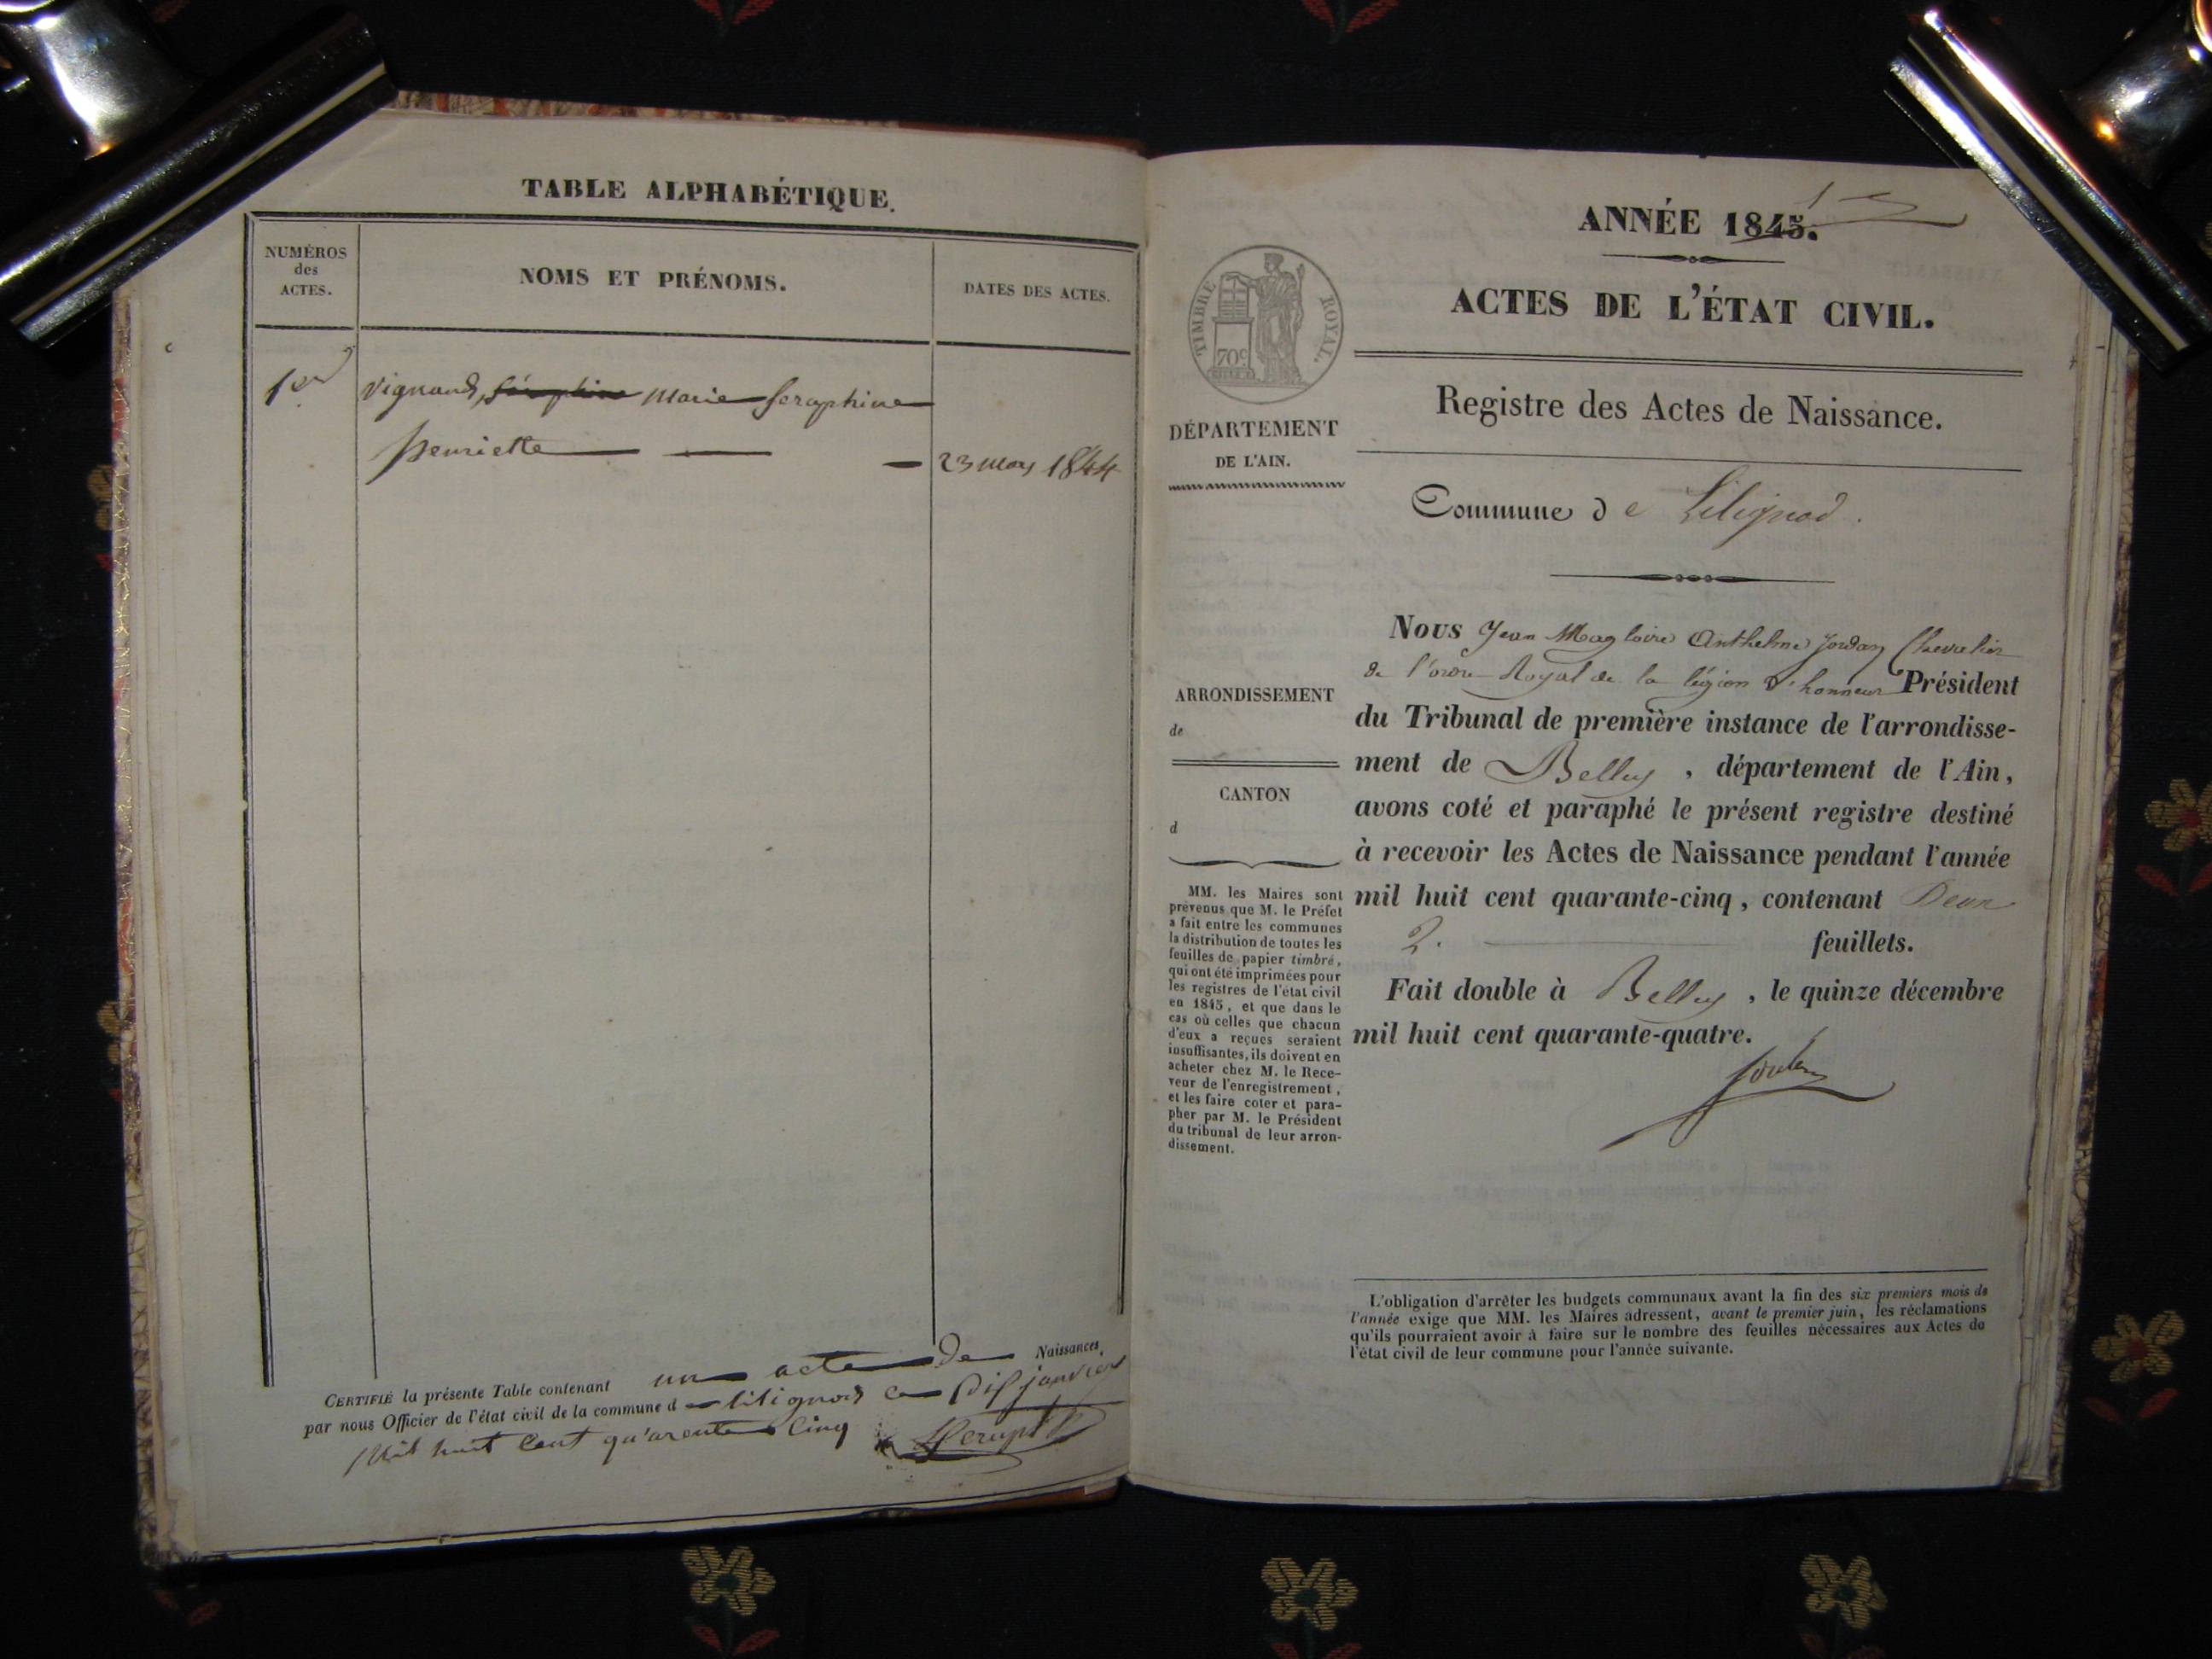 TABLE ALPHABÉTIQUE.
NUMÉROS
des
ACTES.
NOMS ET PRÉNOMS.
DATES DES ACTES.
1er Vignand, Séraphine Marie Seraphine
henriette 23 mars 1844
CERTIFIÉ la présente Table contenant un acte de Naissances,
par nous Officier de l'état civil de la commune de litignod ce Dix janvier
Mil huit Cent qu'arente Cinq
ANNÉE 1845.
ACTES DE L'ÉTAT CIVIL.
TIMBRE ROYAL.
70c
Registre des Actes de Naissance.
DÉPARTEMENT
DE L'AIN.
Commune de Lilignod.
ARRONDISSEMENT
de
CANTON
d
MM. les Maires sont
prévenus que M. le Préfet
a fait entre les communes
la distribution de toutes les
feuilles de papier timbré,
qui ont été imprimées pour
les registres de l'état civil
en 1845, et que dans le
cas où celles que chacun
d'eux a reçues seraient
insuffisantes, ils doivent en
acheter chez M. le Rece-
veur de l'enregistrement,
et les faire coter et para-
pher par M. le Président
du tribunal de leur arron-
dissement.
Nous Jean Magloire Anthelme Jordan Chevalier
de l'ordre Royal de la légion d'honneur Président
du Tribunal de première instance de l'arrondisse-
ment de Belley, département de l'Ain,
avons coté et paraphé le présent registre destiné
à recevoir les Actes de Naissance pendant l'année
mil huit cent quarante-cinq, contenant Deux
2. feuillets.
Fait double à Belley, le quinze décembre
mil huit cent quarante-quatre.
Jordan
L'obligation d'arrêter les budgets communaux avant la fin des six premiers mois de
l'année exige que MM. les Maires adressent, avant le premier juin, les réclamations
qu'ils pourraient avoir à faire sur le nombre des feuilles nécessaires aux Actes de
l'état civil de leur commune pour l'année suivante.